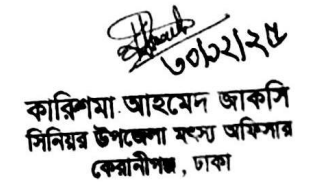 ৩০/১২/২৫
কারিশমা আহমেদ জাকসি
সিনিয়র উপজেলা মৎস্য অফিসার
কেরানীগঞ্জ, ঢাকা